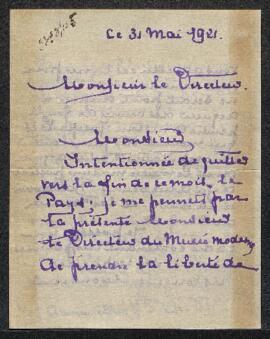 Le 31 Mai 1921.
Monsieur le Directeur.
Monsieur
Intentionnée de quitter
vers la fin de ce mois, le
Pays; je me permets par
la présente Monsieur
le Directeur du Musée moderne,
de prendre la liberté de